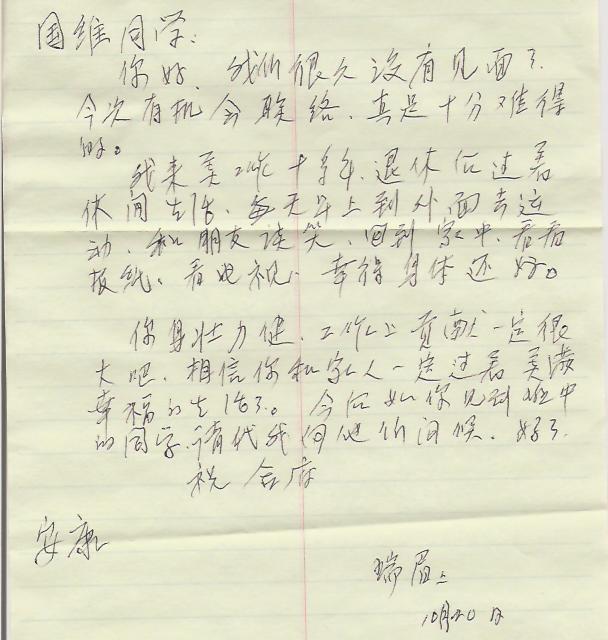 国维同学：
你好，我们很久没有见面了，
今次有机会联络，真是十分难得
的。
我来美工作十多年，退休后过着
休闲生活，每天早上到外面去运
动，和朋友谈笑，回到家中，看看
报纸、看电视，幸得身体还好。
你身壮力健，工作上贡献一定很
大吧，相信你和家人一定过着美满
幸福的生活了。今后如你见到班中
的同学，请代我向他们问候，好了，
祝合府
安康
瑞眉上
10月20日